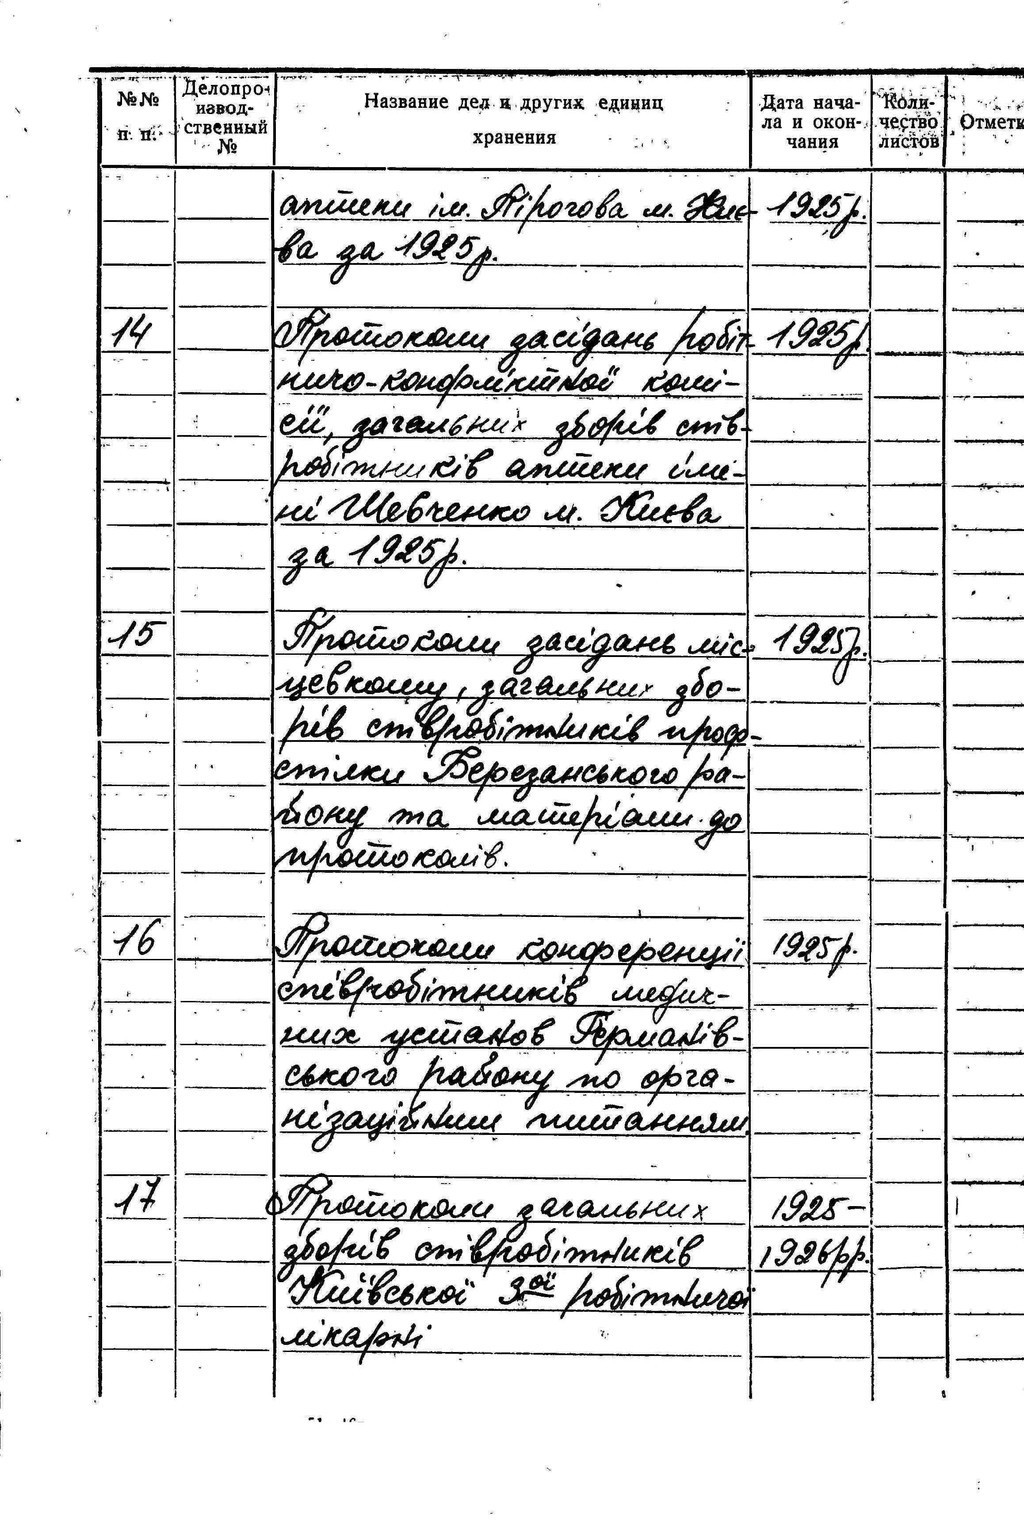 №№ п. п.
Делопро-
извод-
ственный
№
Название дел и других единиц
хранения
Дата нача-
ла и окон-
чания
Коли-
чество
листов
Отметк
аптеки ім. Пірогова м. Киє- 1925р.
ва за 1925р.
14 Протоколи засідань робіт- 1925р.
ничо-конфліктної комі-
сії, загальних зборів спів-
робітників аптеки іме-
ні Шевченко м. Києва
за 1925р.
15 Протоколи засідань міс- 1925р.
цевкому, загальних збо-
рів співробітників проф-
спілки Березанського ра-
йону та матеріали до
протоколів.
16 Протоколи конференції 1925р.
співробітників медич-
них установ Германів-
ського району по орга-
нізаційним питанням.
17 Протоколи загальних 1925-
зборів співробітників 1926рр.
Київської 3ої робітничої
лікарні